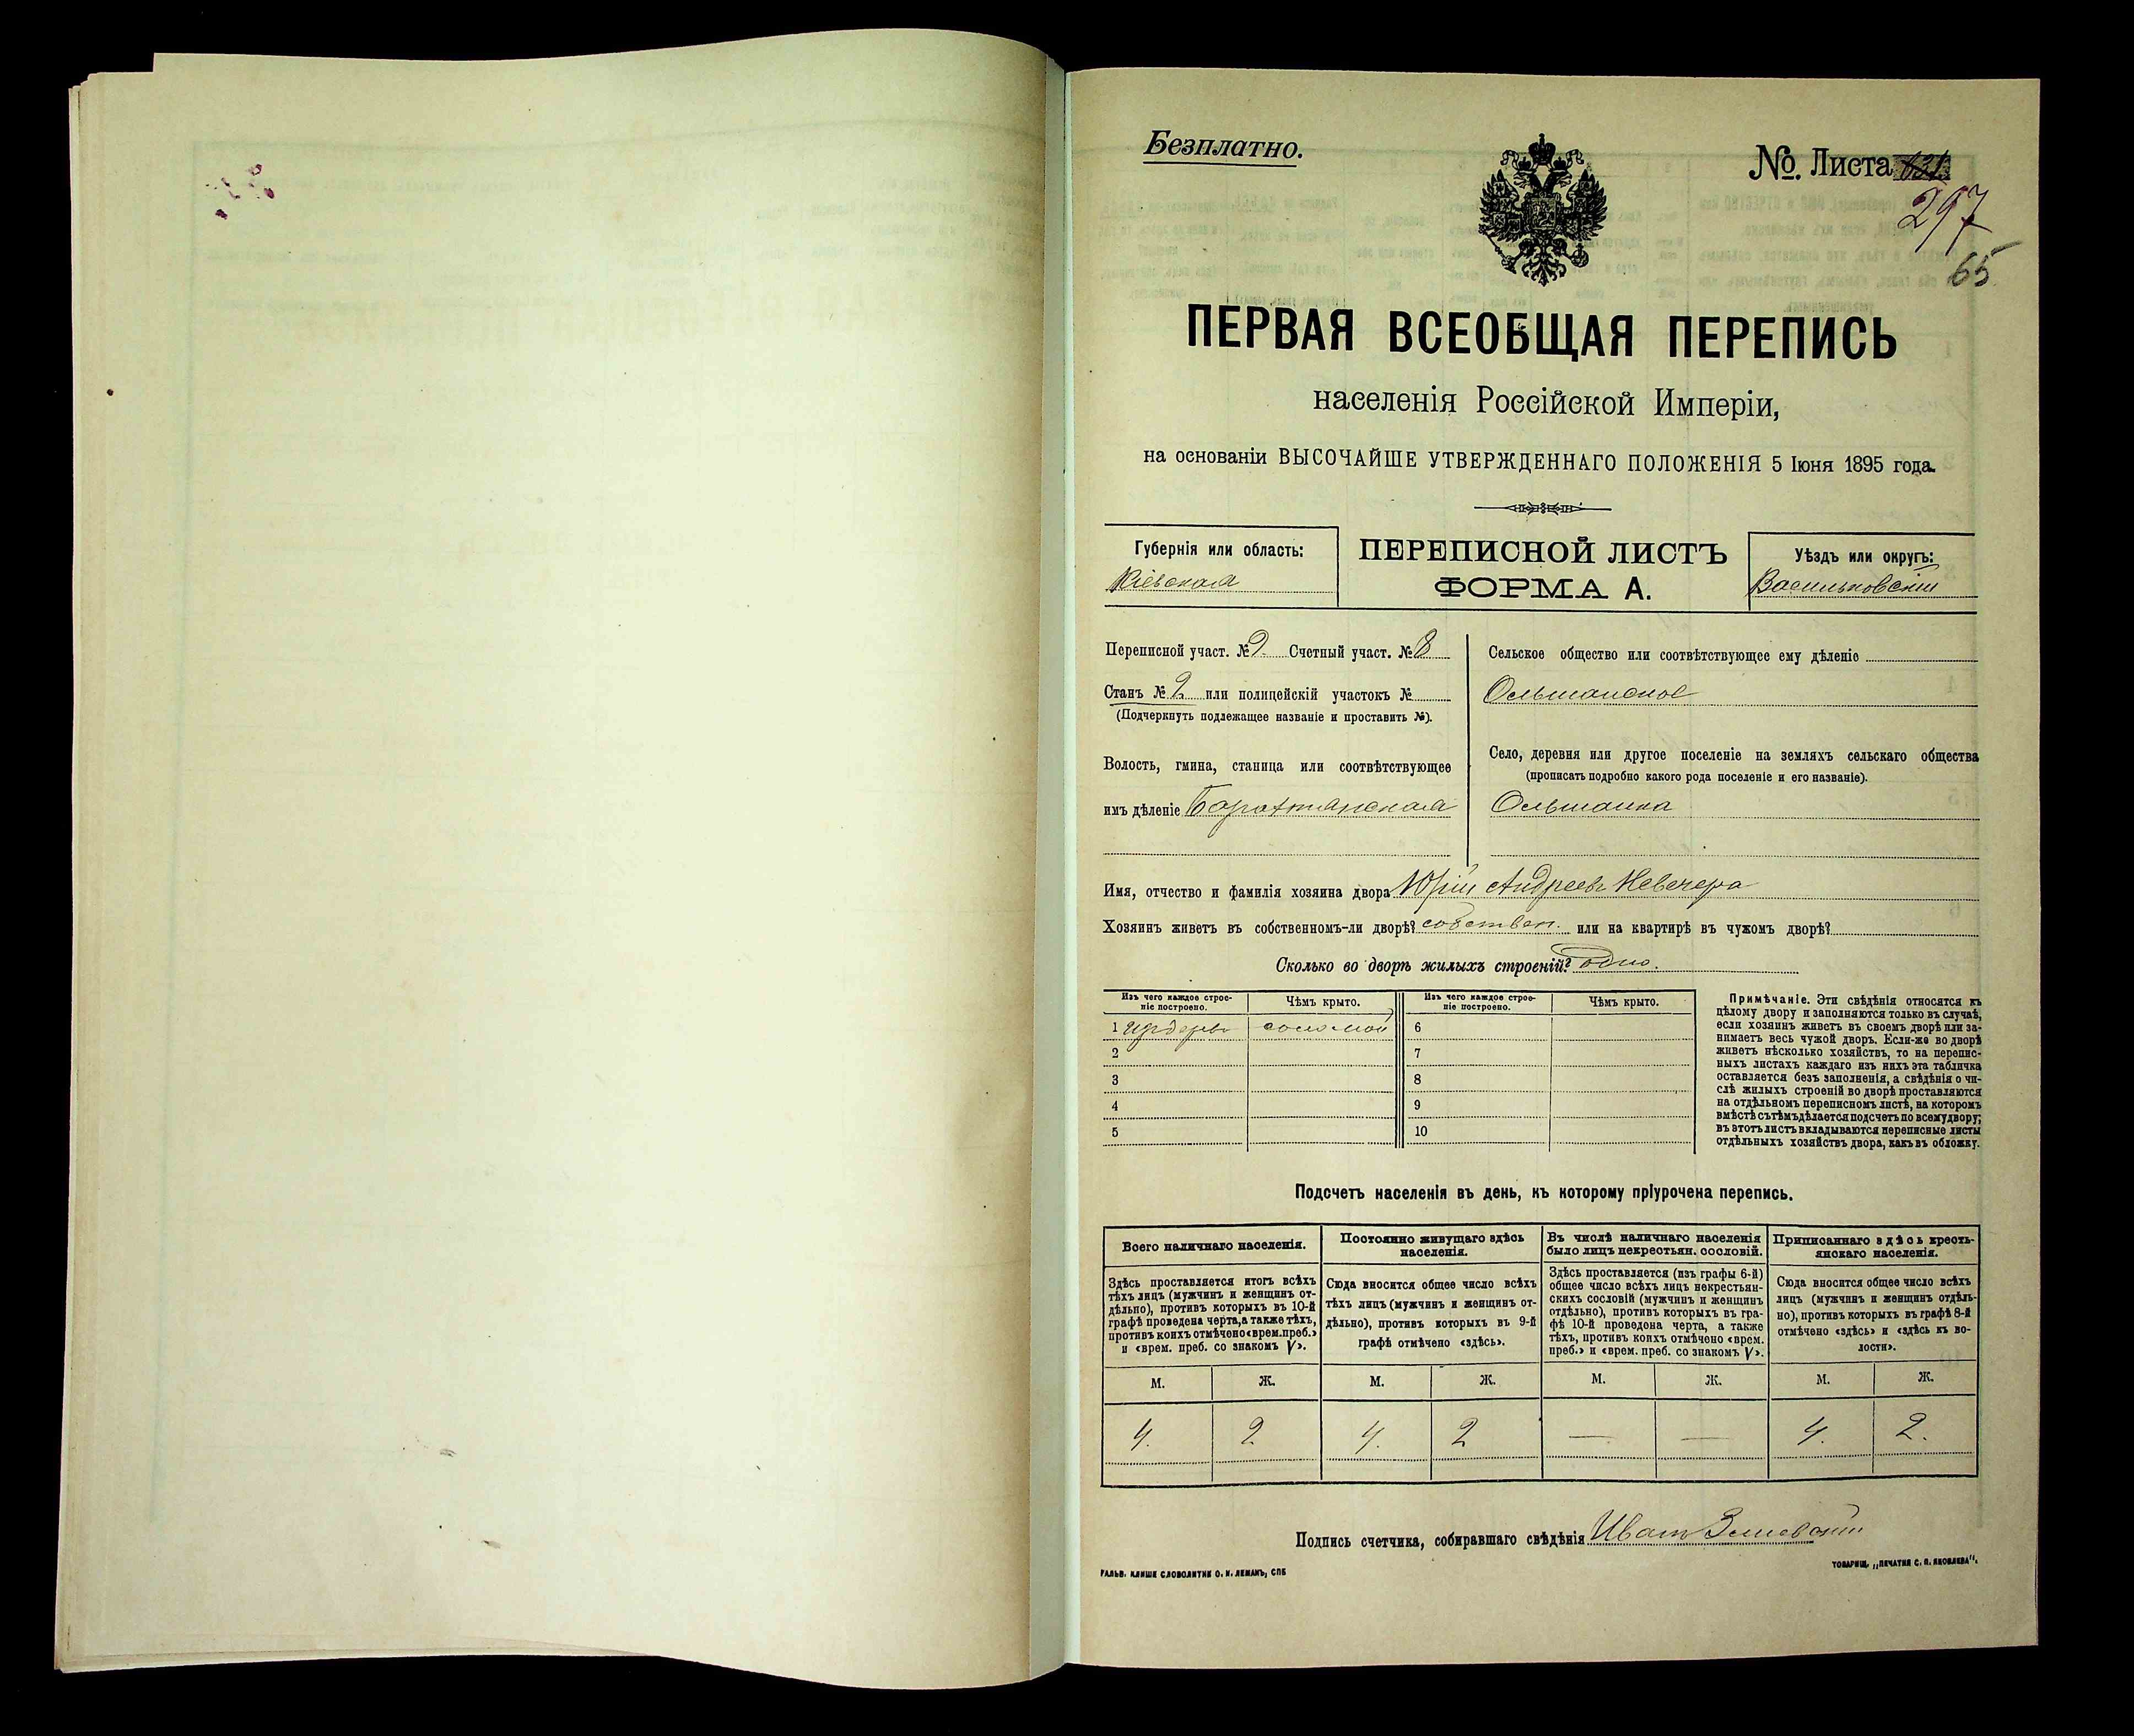 Безплатно.
№. Листа
297
65
ПЕРВАЯ ВСЕОБЩАЯ ПЕРЕПИСЬ
населенія Россійской Имперіи,
на основаніи ВЫСОЧАЙШЕ УТВЕРЖДЕННАГО ПОЛОЖЕНІЯ 5 Іюня 1895 года.
Губернія или область:
Кіевская
ПЕРЕПИСНОЙ ЛИСТЪ
ФОРМА А.
Уѣздъ или округъ:
Васильковскій
Переписной участ. № 9. Счетный участ. № 8
Станъ № 2 или полицейскій участокъ №
(Подчеркнуть подлежащее названіе и проставить №).
Волость, гмина, станица или соотвѣтствующее
имъ дѣленіе
Сельское общество или соотвѣтствующее ему дѣленіе
Ольшанское
Село, деревня или другое поселеніе на земляхъ сельскаго общества
(прописать подробно какого рода поселеніе и его названіе).
Ольшанка
Имя, отчество и фамилія хозяина двора Юрій Андреевъ Невечеря
Хозяинъ живетъ въ собственномъ-ли дворѣ? собствен. или на квартирѣ въ чужомъ дворѣ?
Сколько во дворѣ жилыхъ строеній? одно.
Изъ чего каждое строе-
ніе построено.
Чѣмъ крыто.
Изъ чего каждое строе-
ніе построено.
Чѣмъ крыто.
1 соломой 6
2 7
3 8
4 9
5 10
Примѣчаніе. Эти свѣдѣнія относятся къ
цѣлому двору и заполняются только въ случаѣ,
если хозяинъ живетъ въ своемъ дворѣ или за-
нимаетъ весь чужой дворъ. Если-же во дворѣ
живетъ нѣсколько хозяйствъ, то на перепис-
ныхъ листахъ каждаго изъ нихъ эта табличка
оставляется безъ заполненія, а свѣдѣнія о чи-
слѣ жилыхъ строеній во дворѣ проставляются
на отдѣльномъ переписномъ листѣ, на которомъ
вмѣстѣ съ тѣмъ дѣлается подсчетъ по всему двору;
въ этотъ листъ вкладываются переписные листы
отдѣльныхъ хозяйствъ двора, какъ въ обложку.
Подсчетъ населенія въ день, къ которому пріурочена перепись.
Всего наличнаго населенія.
Здѣсь проставляется итогъ всѣхъ
тѣхъ лицъ (мужчинъ и женщинъ от-
дѣльно), противъ которыхъ въ 10-й
графѣ проведена черта, а также тѣхъ,
противъ коихъ отмѣчено «врем. преб.»
и «врем. преб. со знакомъ V».
Постоянно живущаго здѣсь
населенія.
Сюда вносится общее число всѣхъ
тѣхъ лицъ (мужчинъ и женщинъ от-
дѣльно), противъ которыхъ въ 9-й
графѣ отмѣчено «здѣсь».
Въ числѣ наличнаго населенія
было лицъ некрестьян. сословій.
Здѣсь проставляется (изъ графы 6-й)
общее число всѣхъ лицъ некрестьян-
скихъ сословій (мужчинъ и женщинъ
отдѣльно), противъ которыхъ въ гра-
фѣ 10-й проведена черта, а также
тѣхъ, противъ коихъ отмѣчено «врем.
преб.» и «врем. преб. со знакомъ V».
Приписаннаго здѣсь кресть-
янскаго населенія.
Сюда вносится общее число всѣхъ
лицъ (мужчинъ и женщинъ отдѣль-
но), противъ которыхъ въ графѣ 8-й
отмѣчено «здѣсь» и «здѣсь къ во-
лости».
М. Ж. М. Ж. М. Ж. М. Ж.
4. 2 4. 2 — — 4. 2.
Подпись счетчика, собиравшаго свѣдѣнія Иванъ
ГАЛЬВ. КЛИШЕ СЛОВОЛИТНИ О. И. ЛЕМАНЪ, СПБ
ТОВАРИЩ. „ПЕЧАТНЯ С. П. ЯКОВЛЕВА".